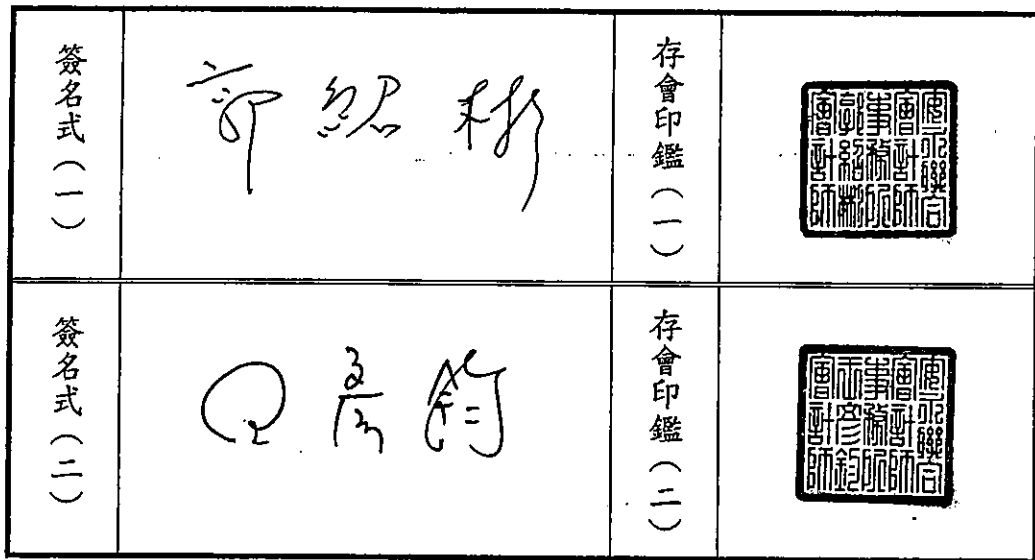 簽名式（一）
郭紹彬
存會印鑑（一）
安永聯合
會計師
事務所
郭紹彬
會計師
簽名式（二）
王彥鈞
存會印鑑（二）
安永聯合
會計師
事務所
王彥鈞
會計師